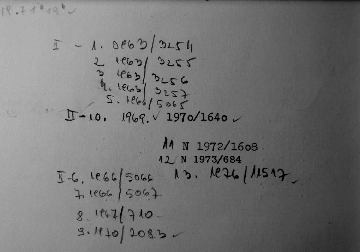 I - 1. 1963/3254
2 1963/3255
3 1963/3256
4. 1963/3257
5. 1966/5065
II-10. 1969. ✓ 1970/1640 ✓
11 N 1972/1608
12 N 1973/684
13. 1976/11517 ✓
I-6. 1966/5066
7. 1966/5067
8. 1967/710
9. 1970/2083 ✓